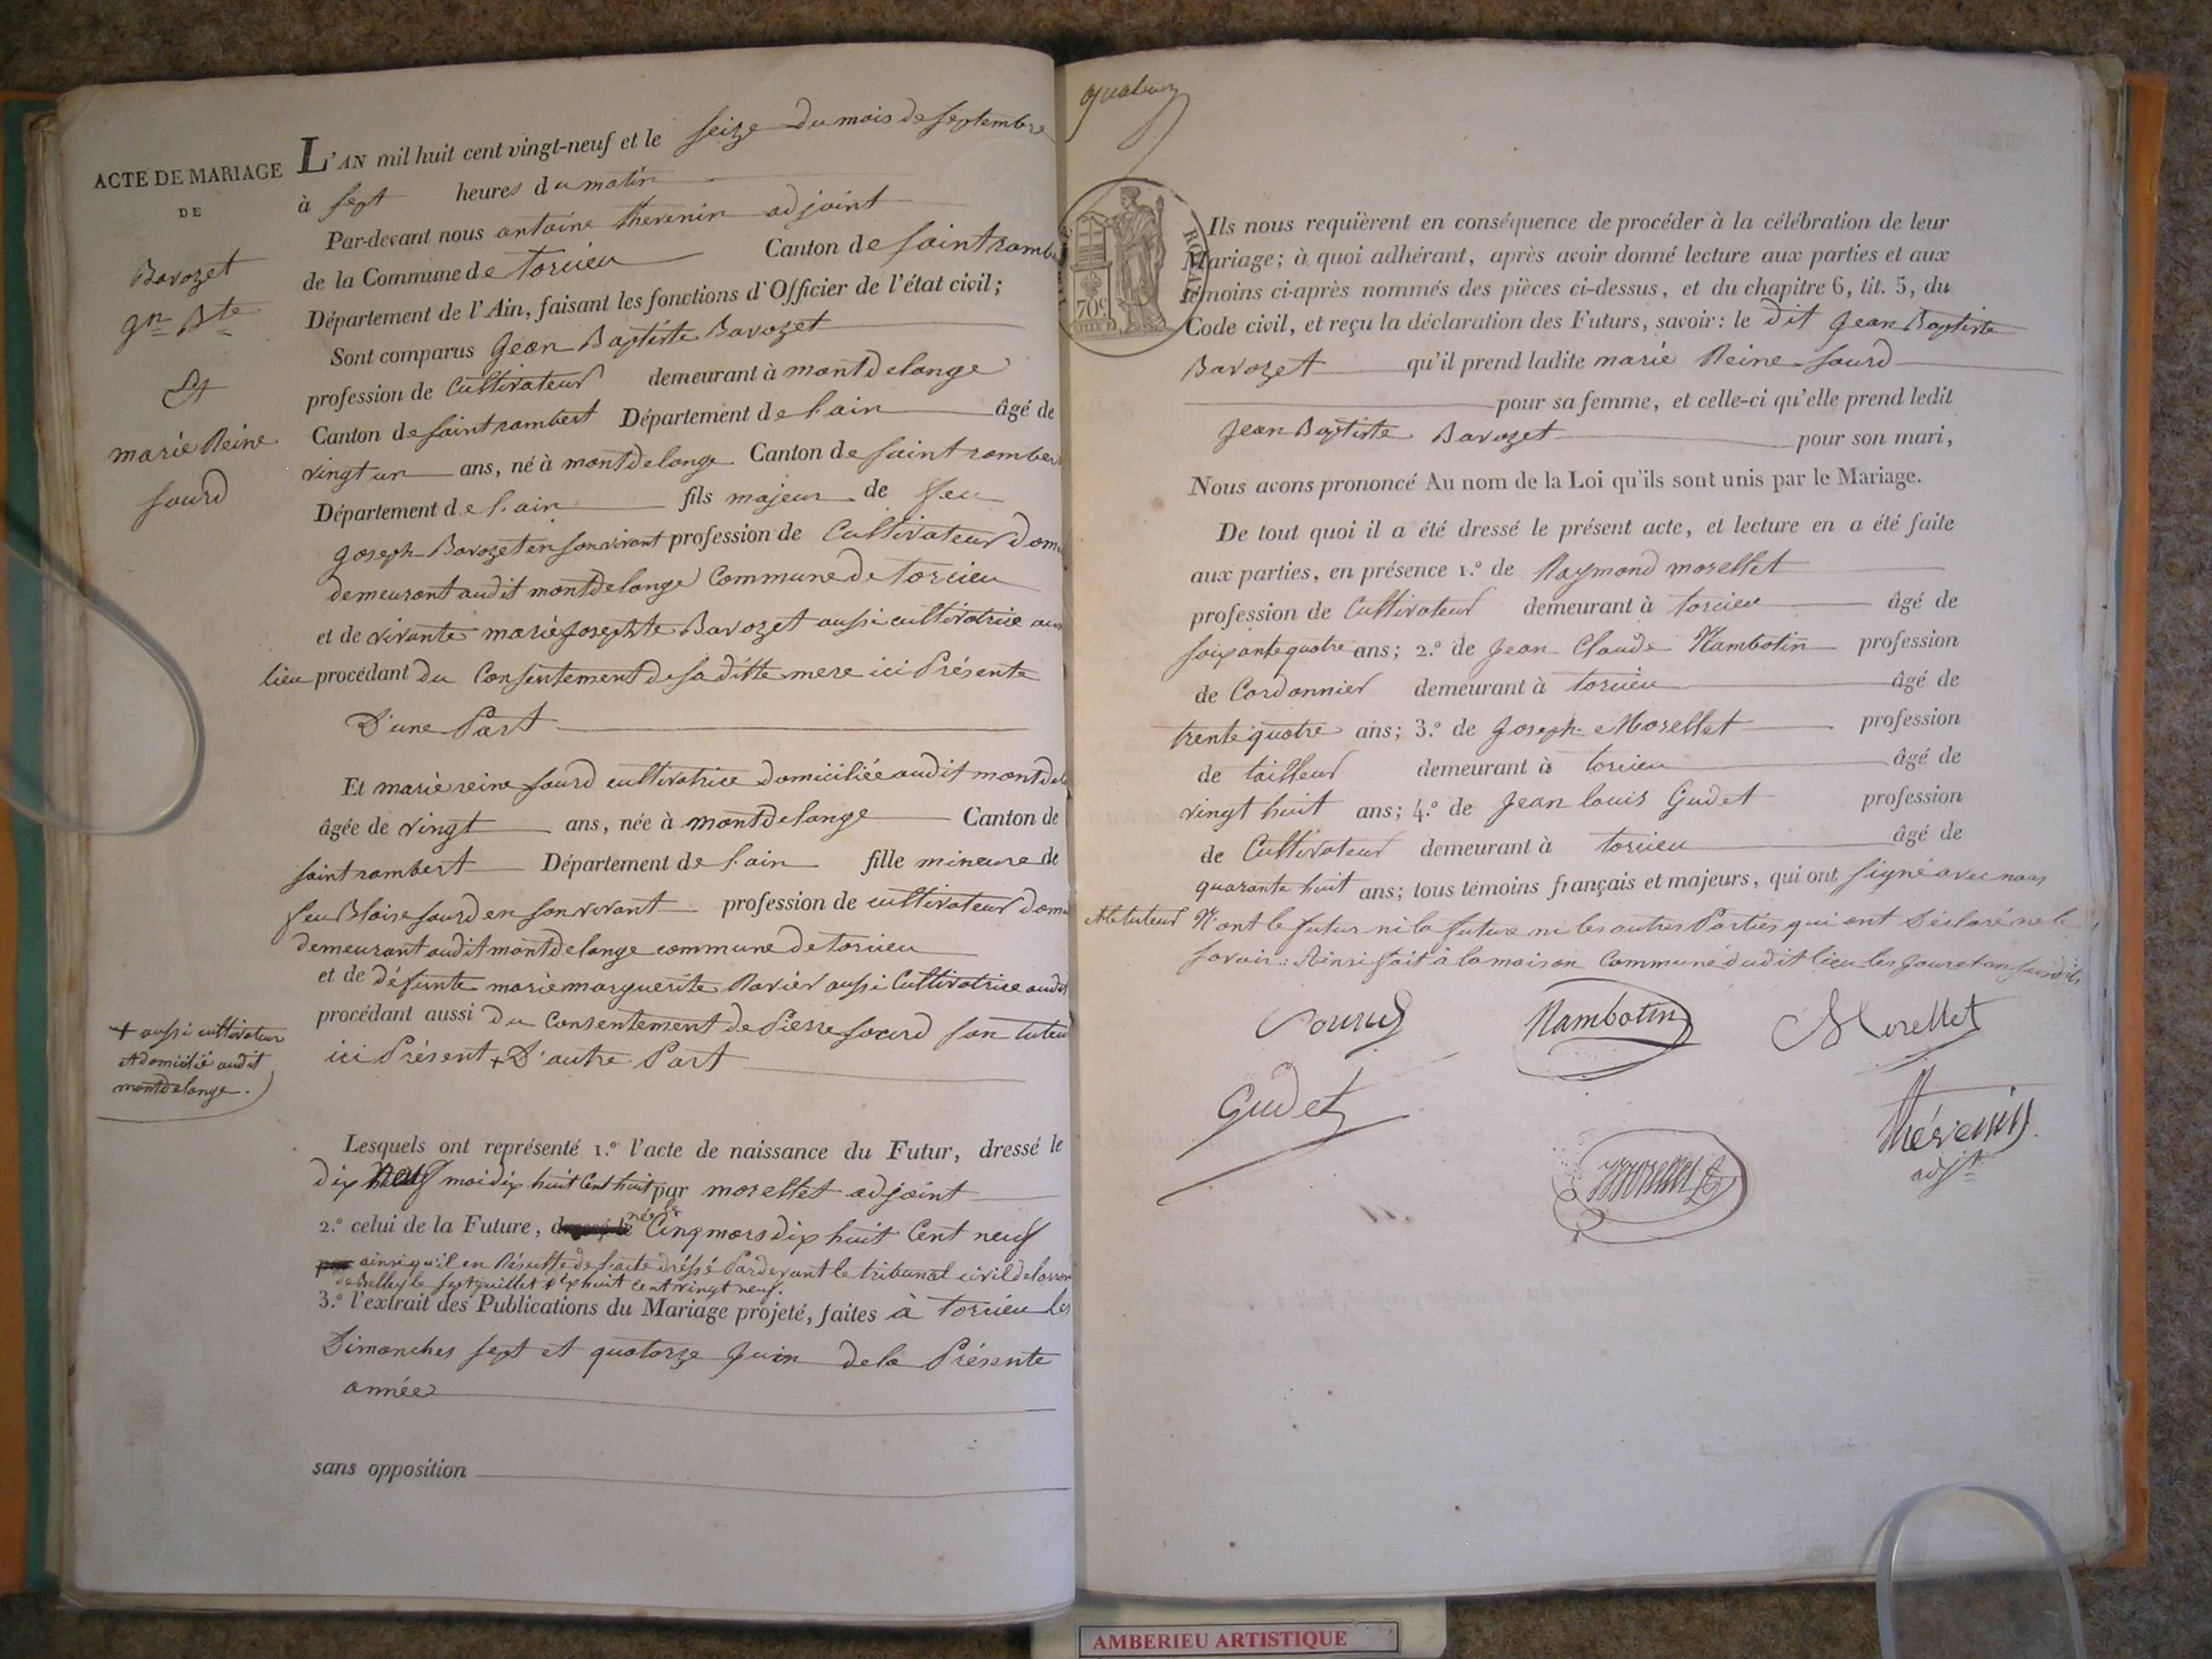 ACTE DE MARIAGE
DE
Bavozet
Jn Bte
Et
marie Reine
sourd
L'AN mil huit cent vingt-neuf et le seize du mois de septembre
à sept heures du matin
Par-devant nous antoine thevenin adjoint
de la Commune de torcieu Canton de saint rambe
Département de l'Ain, faisant les fonctions d'Officier de l'état civil;
Sont comparus Jean Baptiste Bavozet
profession de Cultivateur demeurant à montdelange
Canton de saint rambert Département de l'ain âgé de
vingt un ans, né à montdelange Canton de saint rambert
Département de l'ain fils majeur de feu
Joseph Bavozet en son vivant profession de Cultivateur dom
demeurant audit montdelange Commune de torcieu
et de vivante marie Josephte Bavozet aussi cultivatrice au
lieu procédant du Consentement de sa ditte mere ici Présente
D'une Part
Et marie reine sourd cultivatrice domiciliée audit montdel
âgée de vingt ans, née à montdelange Canton de
saint rambert Département de l'ain fille mineure de
feu Blaise sourd en son vivant profession de cultivateur dom
demeurant audit montdelange commune de torcieu
et de défunte marie marguerite Ravier aussi Cultivatrice audit
procédant aussi du Consentement de Pierre sourd son tuteu
ici Présent + D'autre Part
+ aussi cultivateur
et domicilié audit
montdelange.
Lesquels ont représenté 1.° l'acte de naissance du Futur, dressé le
dix neuf mai dix huit Cent huit par morellet adjoint
2.° celui de la Future, née le Cinq mars dix huit Cent neuf
ainsi qu'il en Résulte de l'acte dréssé Pardevant le tribunal civil de l'arron
de Belley le sept juillet dix huit Cent vingt neuf.
3.° l'extrait des Publications du Mariage projeté, faites à torcieu les
Dimanches sept et quatorze Juin de la Présente
année
sans opposition
70c
ROYAL
Ils nous requièrent en conséquence de procéder à la célébration de leur
Mariage; à quoi adhérant, après avoir donné lecture aux parties et aux
témoins ci-après nommés des pièces ci-dessus, et du chapitre 6, tit. 5, du
Code civil, et reçu la déclaration des Futurs, savoir: le dit Jean Baptiste
Bavozet qu'il prend ladite marie Reine sourd
pour sa femme, et celle-ci qu'elle prend ledit
Jean Baptiste Bavozet pour son mari,
Nous avons prononcé Au nom de la Loi qu'ils sont unis par le Mariage.
De tout quoi il a été dressé le présent acte, et lecture en a été faite
aux parties, en présence 1.° de Raymond morellet
profession de Cultivateur demeurant à torcieu âgé de
soixante quatre ans; 2.° de Jean Claude Rambotin profession
de Cordonnier demeurant à torcieu âgé de
trente quatre ans; 3.° de Joseph Morellet profession
de tailleur demeurant à torcieu âgé de
vingt huit ans; 4.° de Jean louis Gudet profession
de Cultivateur demeurant à torcieu âgé de
quarante huit ans; tous témoins français et majeurs, qui ont signé avec nous
et le tuteur N'ont le futur ni la future ni les autres Parties qui ont Déclaré ne le
savoir: Ainsi fait à la maison Commune dudit lieu les Jour et an susdits
Sourd
Rambotin
Morellet
Gudet
Thévenin
adjt
Morellet
AMBERIEU ARTISTIQUE